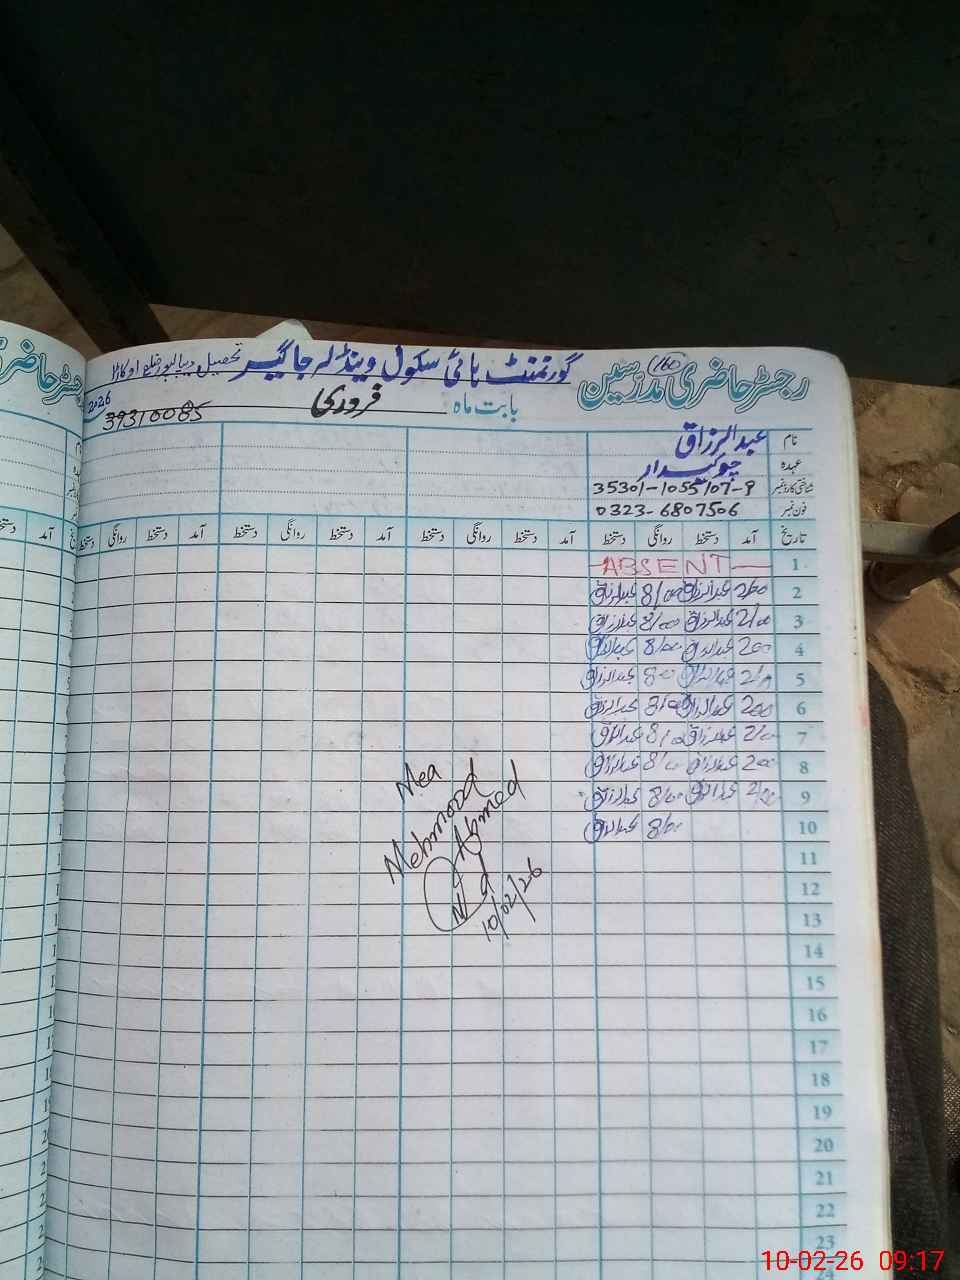 رجسٹر حاضری مدرسین (160) گورنمنٹ ہائی سکول وینڈلہ جاگیر تحصیل دیپالپور ضلع اوکاڑا
بابت ماہ فروری 2026
39310085
نام عبدالرزاق
عہدہ چوکیدار
شناختی کارڈ نمبر 35301-1055107-9
فون نمبر 0323-6807506
تاریخ آمد دستخط روانگی دستخط آمد دستخط روانگی دستخط آمد دستخط روانگی دستخط آمد دستخط روانگی دستخط
1 ABSENT
2 2/00 عبدالرزاق 8/00 عبدالرزاق
3 2/00 عبدالرزاق 8/00 عبدالرزاق
4 200 عبدالرزاق 8/00 عبدالرزاق
5 عبدالرزاق 800 عبدالرزاق
6 200 عبدالرزاق 8/00 عبدالرزاق
7 2/00 عبدالرزاق 8/00 عبدالرزاق
8 200 عبدالرزاق 8/00 عبدالرزاق
9 2/00 عبدالرزاق 8/00 عبدالرزاق
10 8/00 عبدالرزاق
Mea
Mehmood
Ahmed
10/02/26
11
12
13
14
15
16
17
18
19
20
21
22
23
24
رجسٹر حاضری
آمد دستخط
10-02-26 09:17